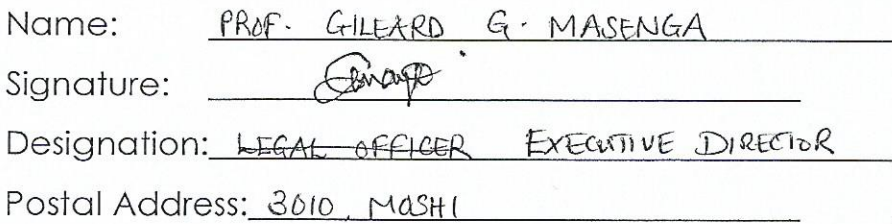 Name: PROF. GILEARD G. MASENGA
Signature:
Designation: LEGAL OFFICER EXECUTIVE DIRECTOR
Postal Address: 3010, MOSHI